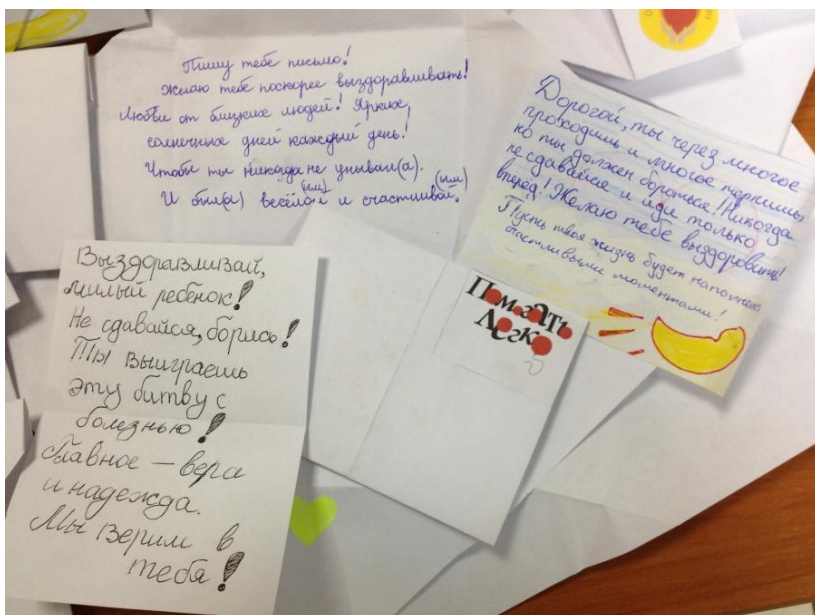 Пишу тебе письмо!
Желаю тебе поскорее выздоравливать!
Любви от близких людей! Ярких,
солнечных дней каждый день!
Чтобы ты никогда не унывал(а).
И был(а) весёлой (ым) и счастливой (ым).
Дорогой, ты через многое
проходишь и многое терпишь
но ты должен бороться! Никогда
не сдавайся и иди только
вперёд! Желаю тебе выздороветь!
Пусть твоя жизнь будет наполнена
счастливыми моментами!
Выздоравливай,
милый ребёнок!
Не сдавайся, борись!
Ты выиграешь
эту битву с
болезнью!
Главное — вера
и надежда.
Мы верим в
тебя!
Помогать
Легко